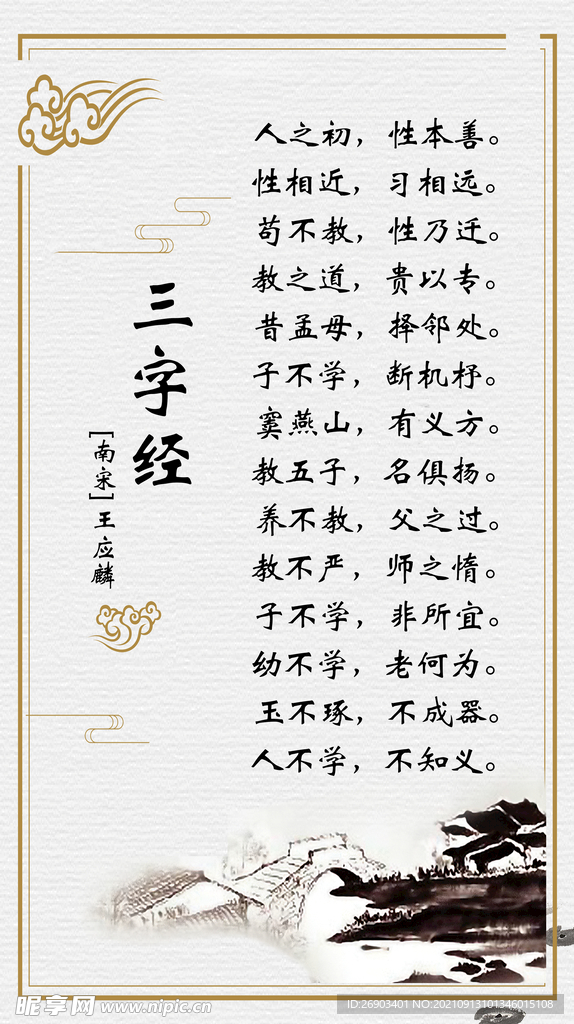 三字经
[南宋]王应麟
人之初，性本善。
性相近，习相远。
苟不教，性乃迁。
教之道，贵以专。
昔孟母，择邻处。
子不学，断机杼。
窦燕山，有义方。
教五子，名俱扬。
养不教，父之过。
教不严，师之惰。
子不学，非所宜。
幼不学，老何为。
玉不琢，不成器。
人不学，不知义。
昵享网 www.nipic.cn
ID:26903401 NO:20210913101346015108